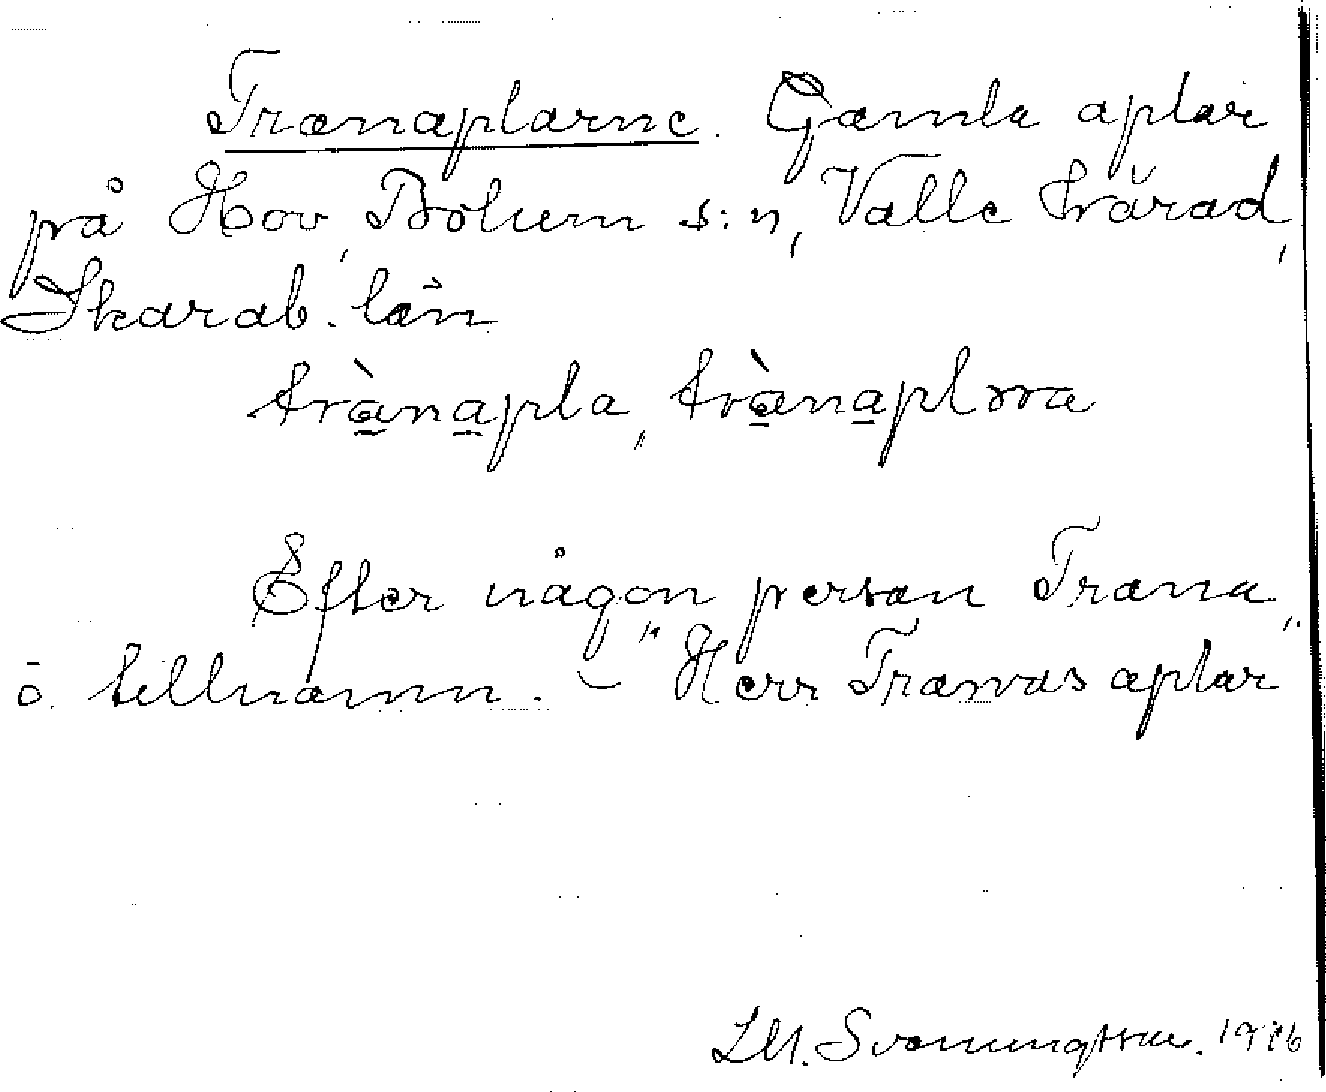 Tranaplarne. Gamla aplar
på Hov, Bolum s:n, Valle härad,
Skarab. län
trànapla, trànaplɷra
Efter någon person Trana
ö. tillnamn. – "Herr Tranas aplar"
L.M. Svenungsson. 1926